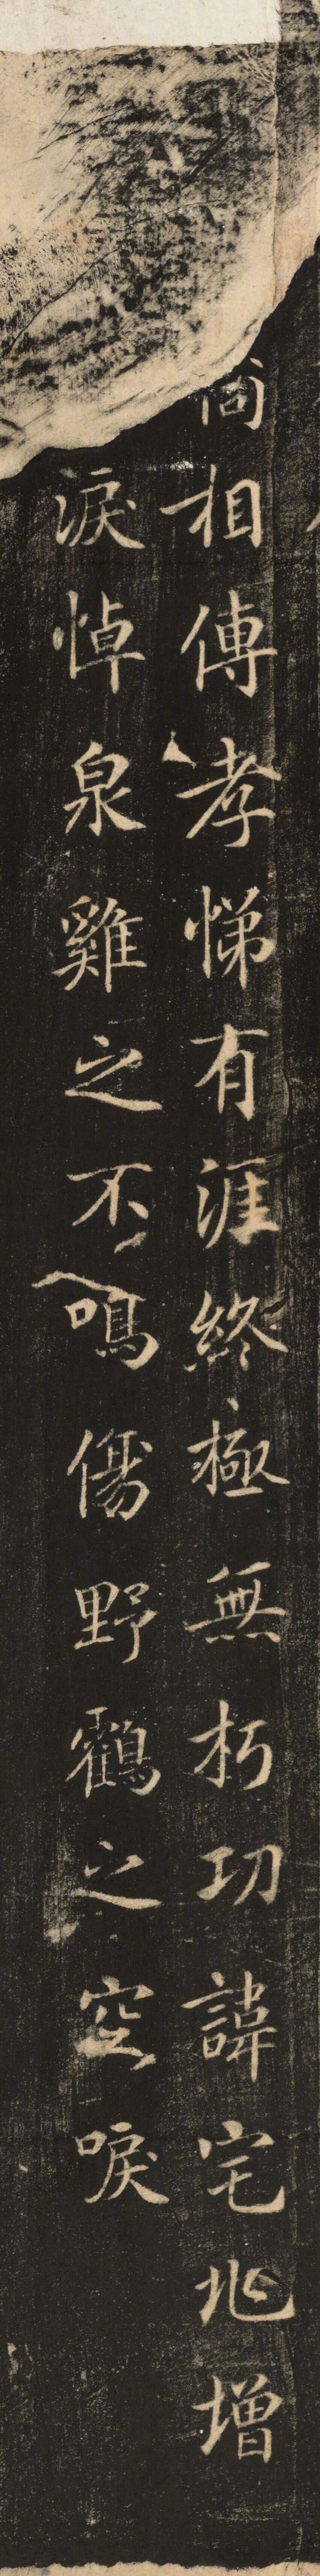 尚相傳孝悌有涯終極無朽功諱宅兆增
淚悼泉雞之不鳴傷野鶴之空唳